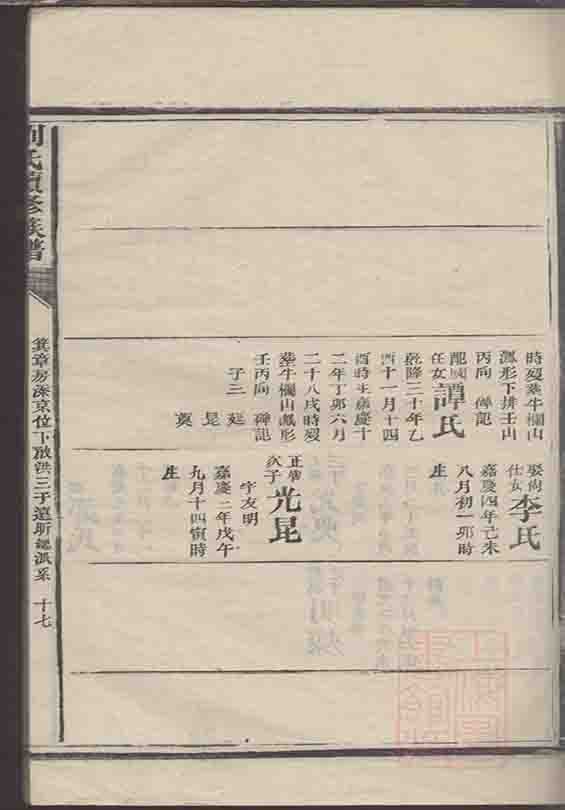 時歿塟牛欄山
瓢形下排壬山
丙向 碑記
配國任女譚氏
乾隆三十年乙
酉十一月十四
酉時生嘉慶十
二年丁卯六月
二十八戌時歿
塟牛欄山瓢形
壬丙向 碑記
子三 延
昆
奠
娶尚仕女李氏
嘉慶四年己未
八月初一卯時
生
正唐次子光昆
字友明
嘉慶二年戊午
九月十四寅時
生
劉氏續修族譜
箕章房深京位下啟洪三子
派系 十七